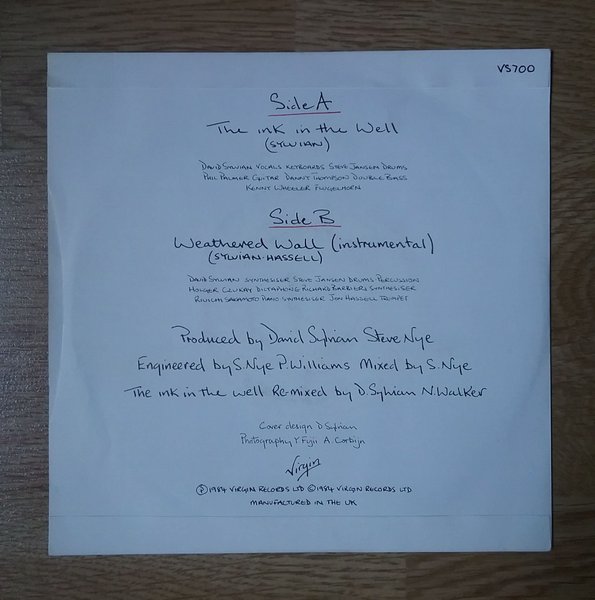 VS700
Side A
The ink in the Well
(SYLVIAN)
DAVID SYLVIAN VOCALS KEYBOARDS STEVE JANSEN DRUMS
PHIL PALMER GUITAR DANNY THOMPSON DOUBLE BASS
KENNY WHEELER FLUGELHORN
Side B
Weathered Wall (instrumental)
(SYLVIAN·HASSELL)
DAVID SYLVIAN SYNTHESISER STEVE JANSEN DRUMS·PERCUSSION
HOLGER CZUKAY DICTAPHONE·RICHARD BARBIERI SYNTHESISER
RIUICHI SAKAMOTO PIANO SYNTHESISER JON HASSELL TRUMPET
Produced by David Sylvian Steve Nye
Engineered by S. Nye P. Williams Mixed by S. Nye
The ink in the well Re-mixed by D. Sylvian N. Walker
Cover design D Sylvian
Photography Y. Fujii A. Corbijn
Virgin
Ⓟ 1984 VIRGIN RECORDS LTD © 1984 VIRGIN RECORDS LTD
MANUFACTURED IN THE UK